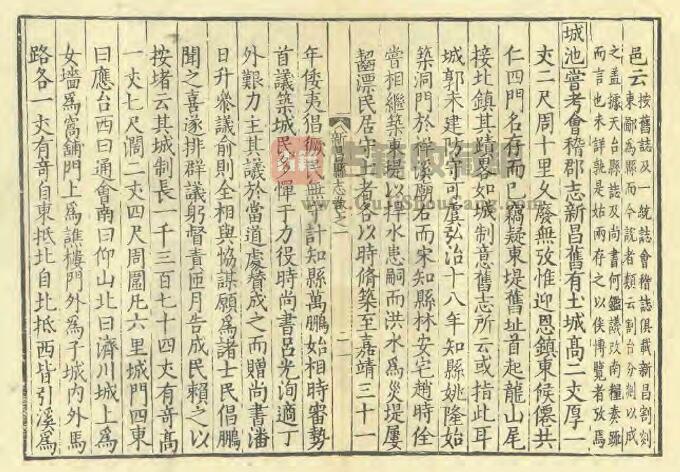 邑云按舊志及一統誌會稽誌俱載新昌割剡
東鄙為縣而今談者類云割台分剡以成
之蓋據天台縣誌及尚書何鑑議改南糧奏疏
而言也未詳孰是姑兩存之以俟博覽者攷焉
城池嘗考會稽郡志新昌舊有土城高二丈厚一
丈二尺周十里久廢無攷惟迎恩鎮東候僊共
仁四門名存而已竊疑東堤舊址首起龍山尾
接北鎮其蹟畧如城制意舊志所云或指此耳
城郭未建防守可虞弘治十八年知縣姚隆始
築洞門於祥溪廟右而宋知縣林安宅趙時佺
嘗相繼築東堤以捍水患嗣而洪水為災堤屢
齧漂民居守土者各以時脩築至嘉靖三十一
新昌縣志卷之
二
年倭夷倡獗民無守計知縣萬鵬始相時審勢
首議築城民多憚于力役時尚書呂光洵適丁
外艱力主其議於當道處贊成之而贈尚書潘
日升衆議俞則全相與協謀願為諸士民倡鵬
聞之喜遂排群議躬督責匝月告成民賴之以
按堵云其城制長一千三百七十四丈有奇高
一丈七尺濶二丈四尺周圍凡六里城門四東
曰應台西曰通會南曰仰山北曰濟川城上為
女墻為窩舖門上為譙樓門外為子城內外馬
路各一丈有奇自東抵北自北抵西皆引溪為